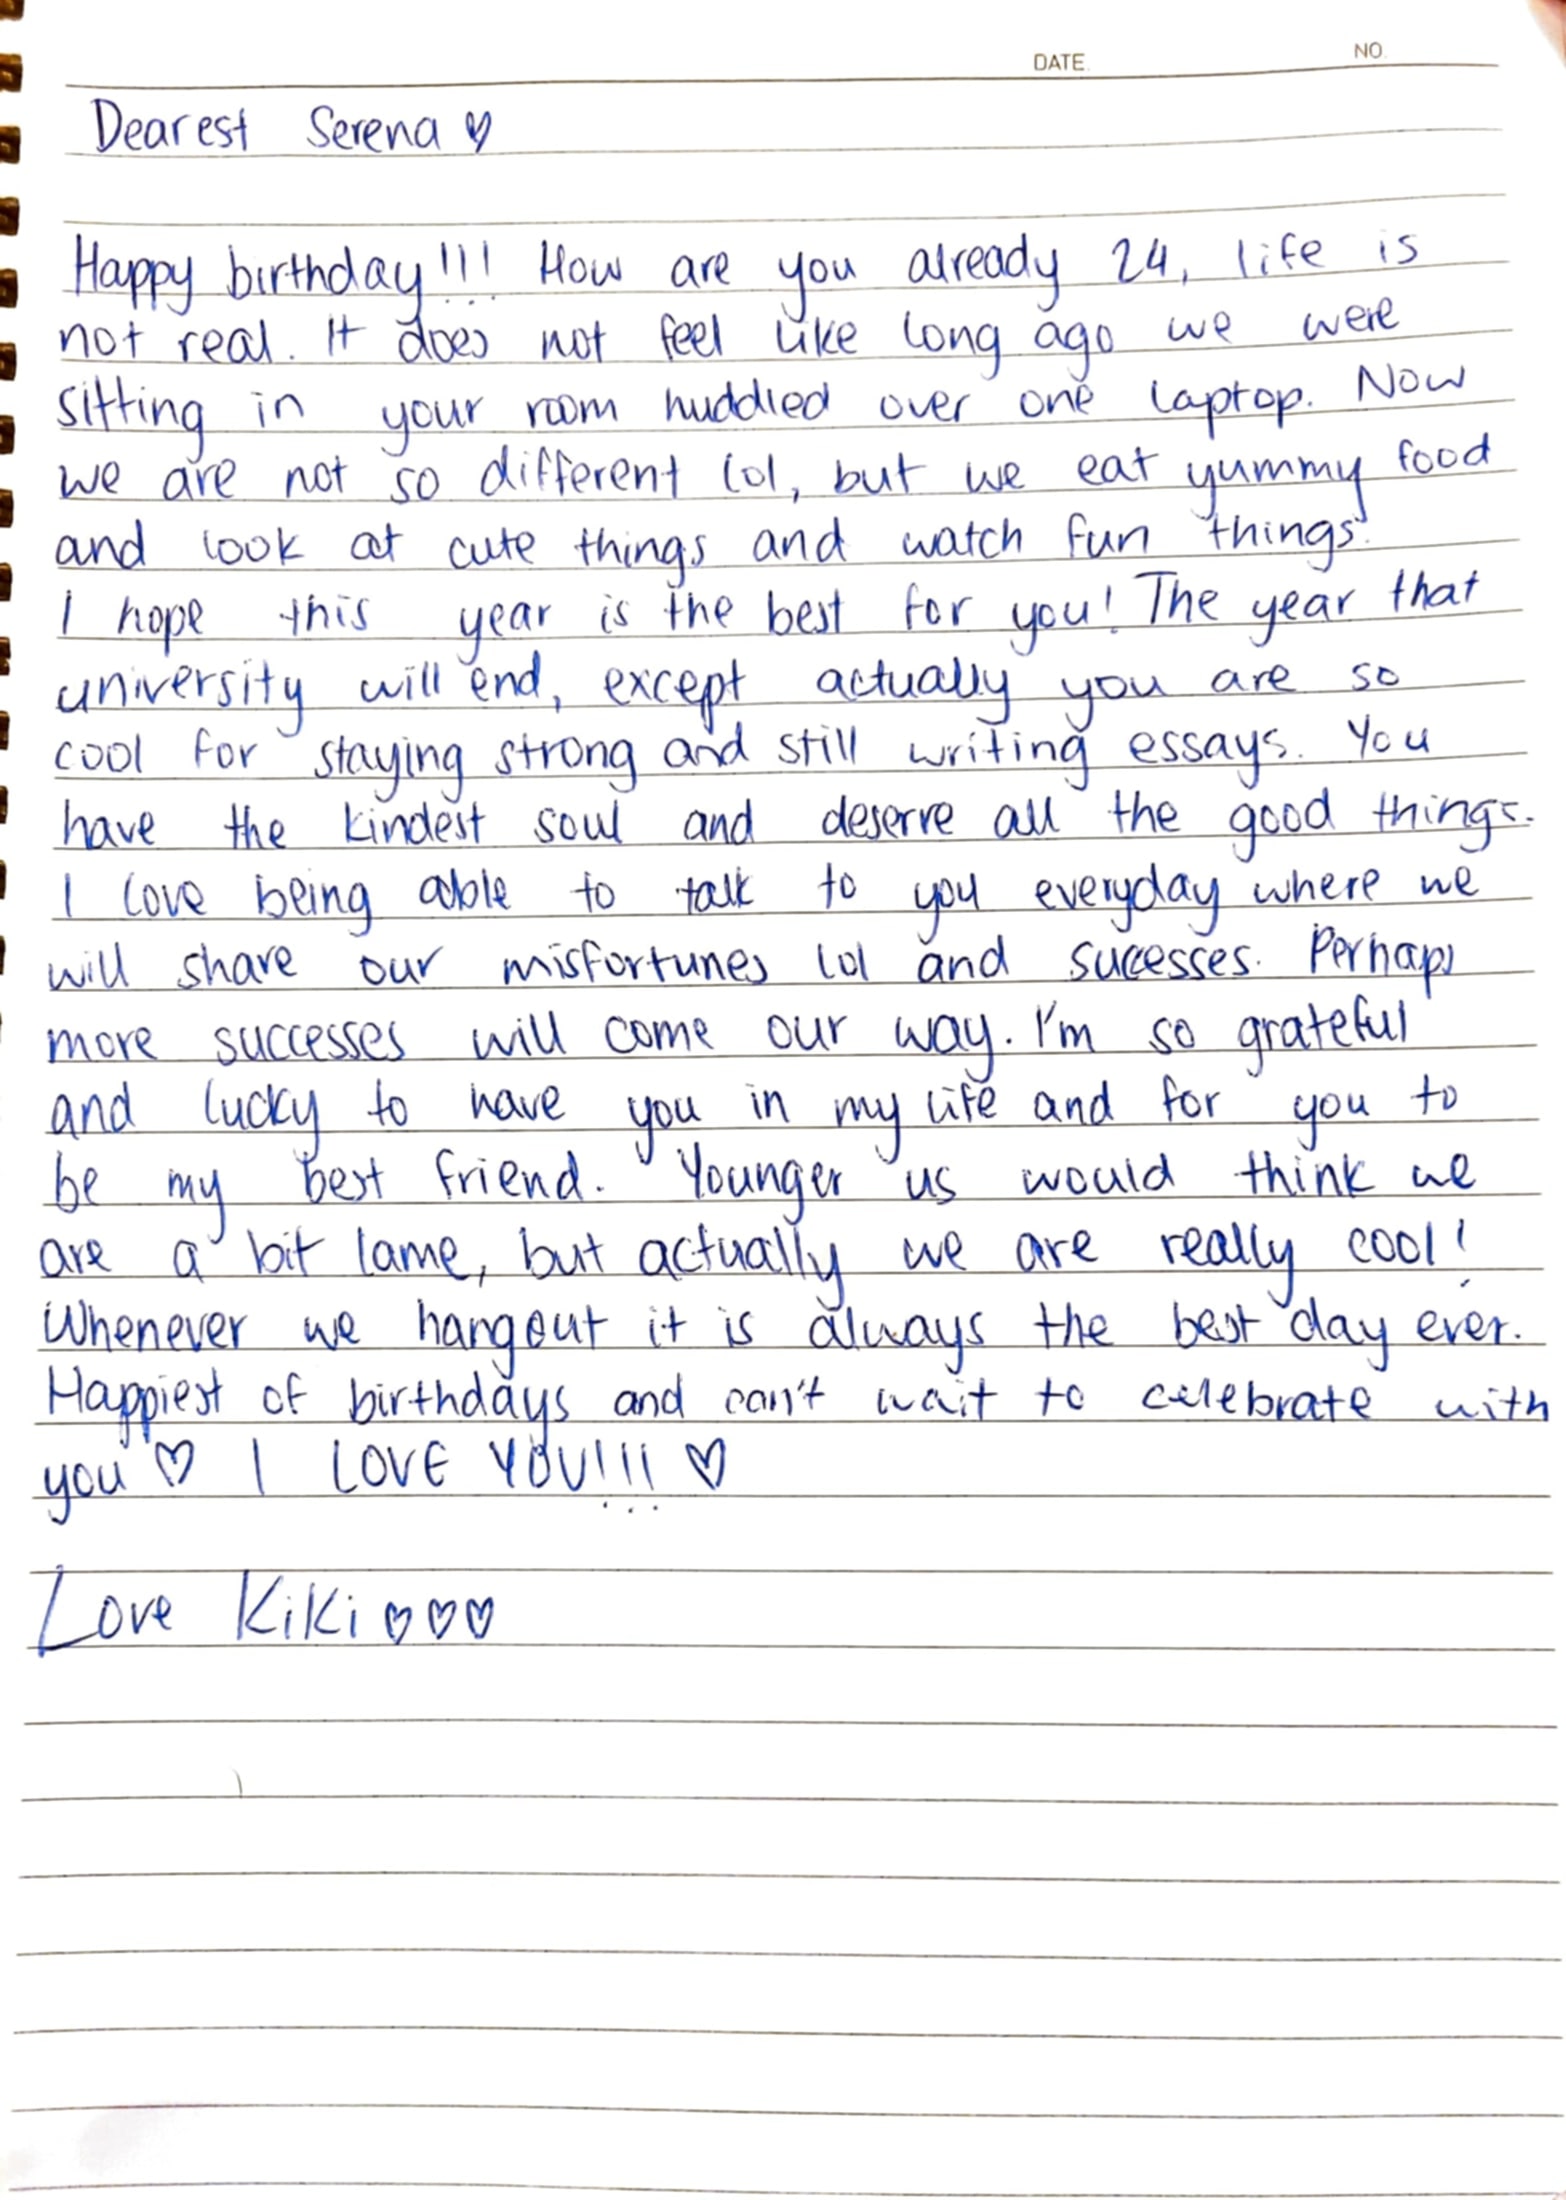 DATE. NO.
Dearest Serena ♡
Happy birthday!!! How are you already 24, life is
not real. It does not feel like long ago we were
sitting in your room huddled over one laptop. Now
we are not so different lol, but we eat yummy food
and look at cute things and watch fun things.
I hope this year is the best for you! The year that
university will end, except actually you are so
cool for staying strong and still writing essays. You
have the kindest soul and deserve all the good things.
I love being able to talk to you everyday where we
will share our misfortunes lol and sucesses. Perhaps
more successes will come our way. I'm so grateful
and lucky to have you in my life and for you to
be my best friend. Younger us would think we
are a bit lame, but actually we are really cool!
Whenever we hangout it is always the best day ever.
Happiest of birthdays and can't wait to celebrate with
you ♡ I LOVE YOU!!! ♡
Love Kiki ♡♡♡